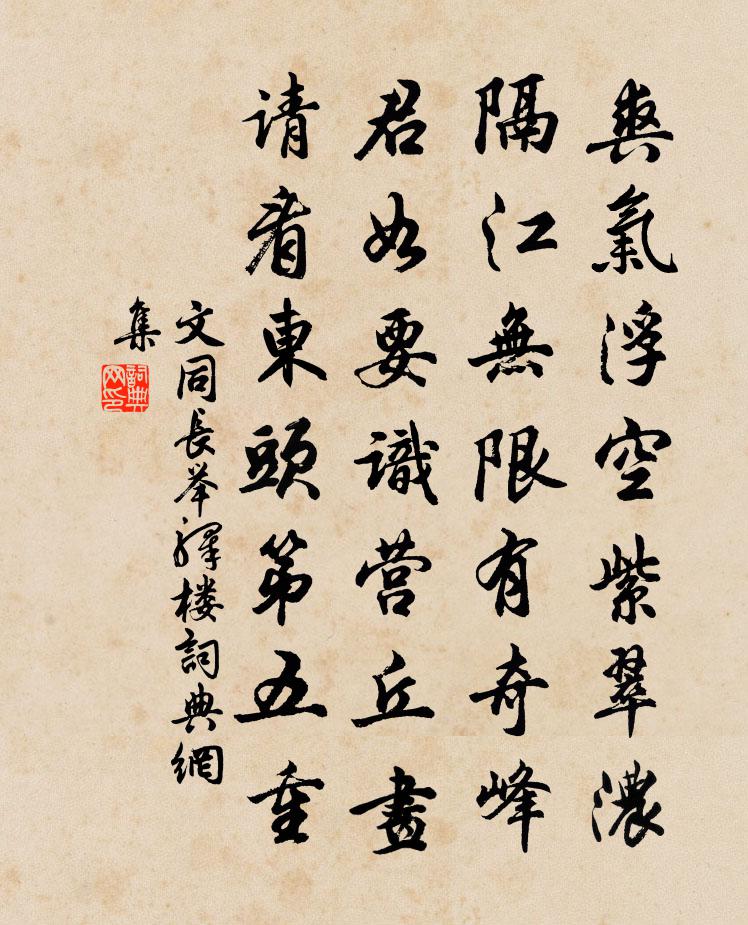 爽氣浮空紫翠濃
隔江無限有奇峰
君如要識营丘畫
请看東頭第五重
文同長举驛楼詞典網
集
詞典网印